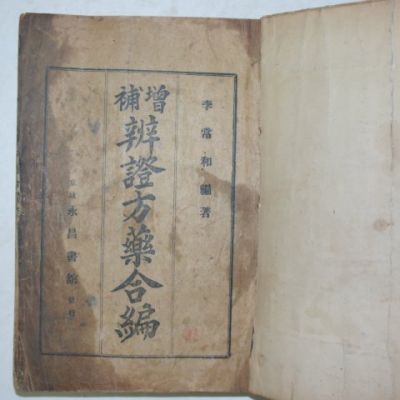 李常和編著
增補
辨證方藥合編
永昌書館